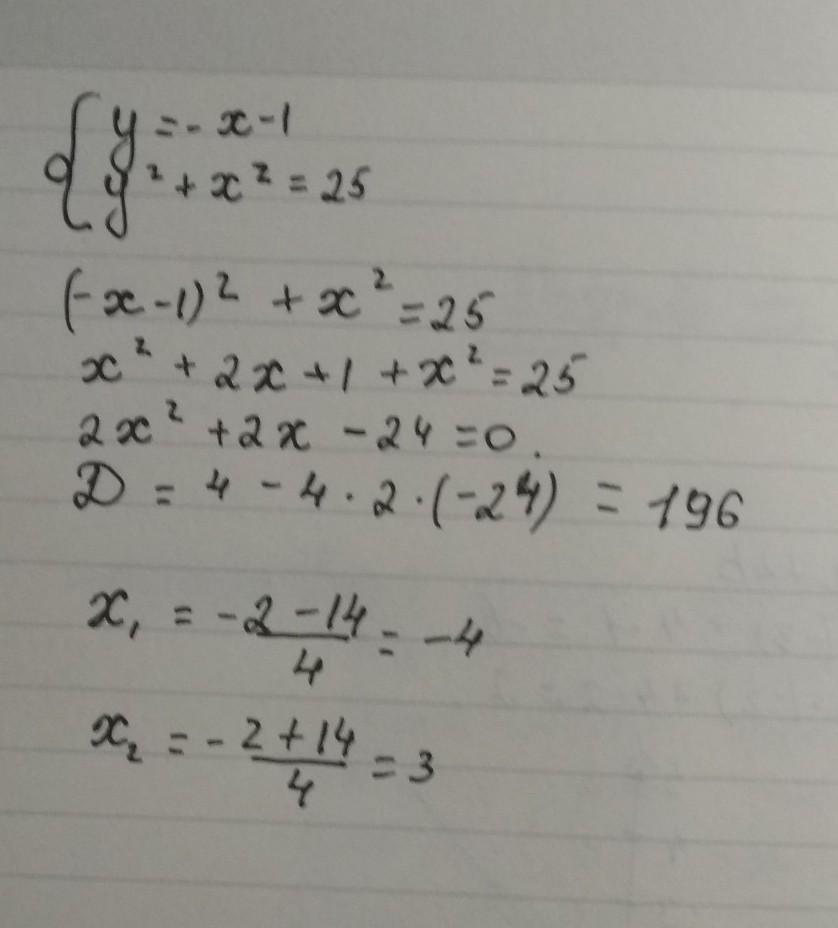 { y = - x - 1
y² + x² = 25
(-x - 1)² + x² = 25
x² + 2x + 1 + x² = 25
2x² + 2x - 24 = 0.
D = 4 - 4 · 2 · (-24) = 196
x₁ = -2 - 14 / 4 = -4
x₂ = -2 + 14 / 4 = 3